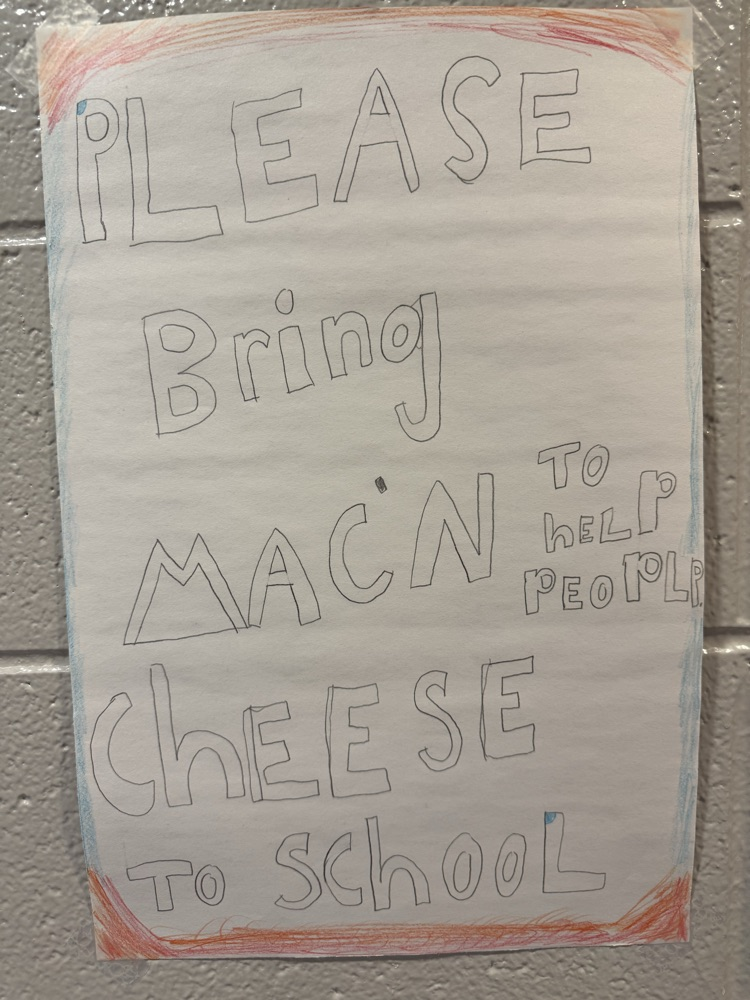 PLEASE
Bring
MAC'N
ChEESE
TO SchOOL
TO
hELP
PEOPLP